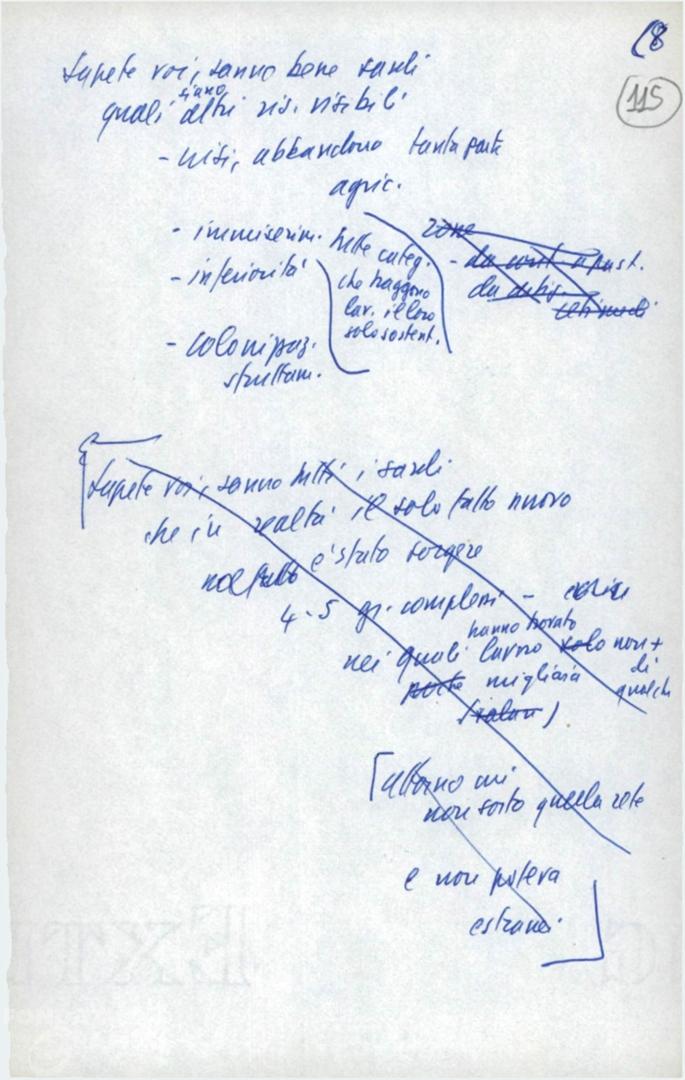 (8
115
Sapete voi, sanno bene sardi
quali siano altri ris. visibili
- crisi, abbandono tanta parte
agric.
- immiserim. tutte categ.
che traggono
lav. il loro
solo sostent.
- inferiorità
- colonizzaz.
sfruttam.
zone
- da cont. a past.
da
Sapete voi, sanno tutti i sardi
che in realtà il solo fatto nuovo
è stato sorgere
4-5 gr. complessi -
nei quali hanno trovato lavoro solo non +
di
qualche
poche migliaia
(salari)
attorno cui
non sorto quella rete
e non poteva
estranei